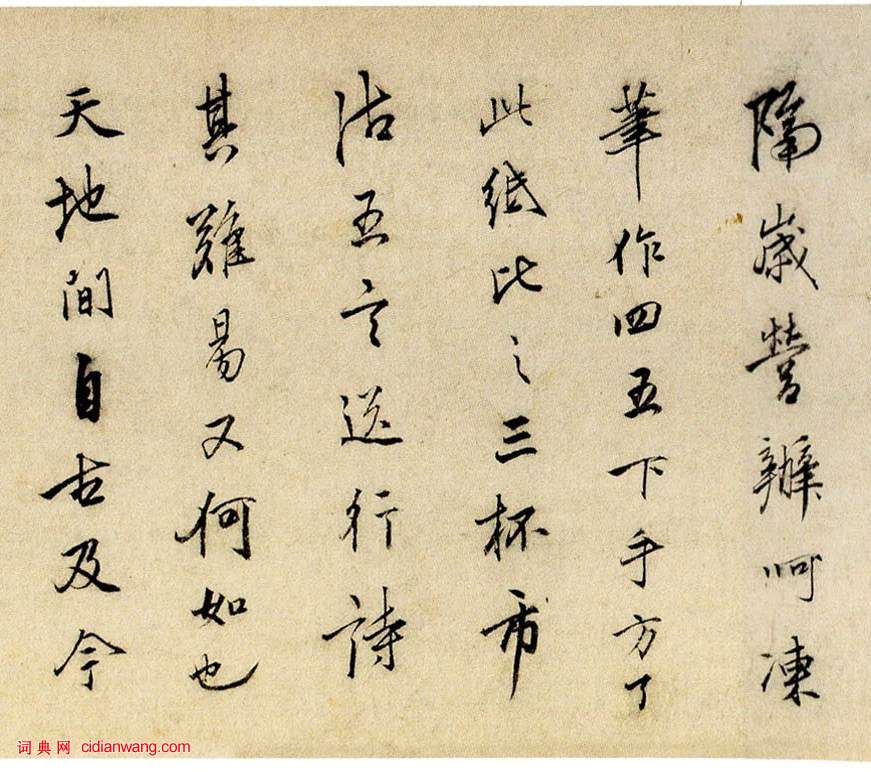 隔歲營辦呵凍
筆作四五下手方了
此紙比之三杯市
沽五言送行詩
其難易又何如也
天地間自古及今
词典网 cidianwang.com